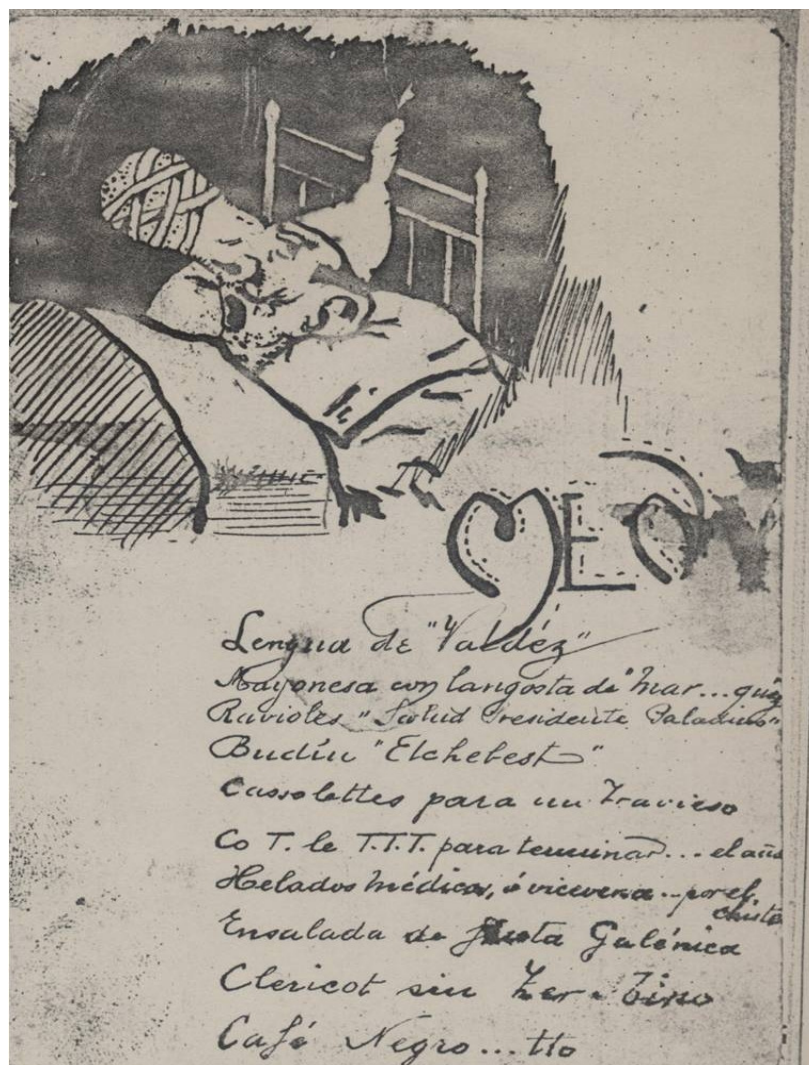 MENU
Lengua de "Valdéz"
Mayonesa con langosta de "mar... quéz
Ravioles "Salud Presidente Paladino"
Budín "Etchebest"
Cassolettes para un Travieso
Co T. le T.T.T. para terminar... el año
Helados médicos, ó viceversa... por el
chiste
Ensalada de fruta Galénica
Clericot sin Zer-bino
Café Negro... tto